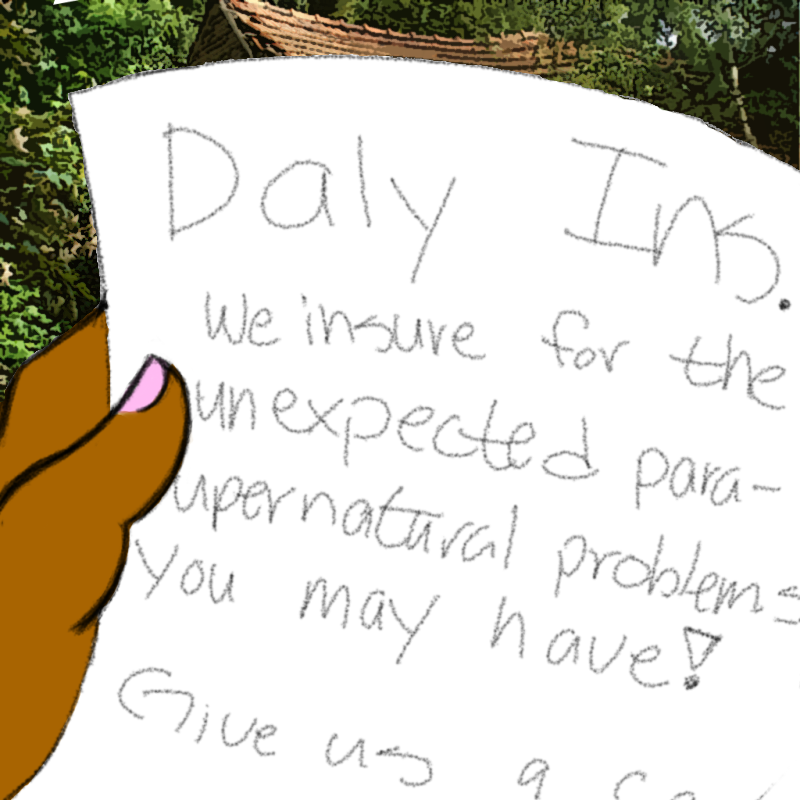 Daly Ins.
We insure for the
unexpected para-
upernatural problems
you may have!
Give us a